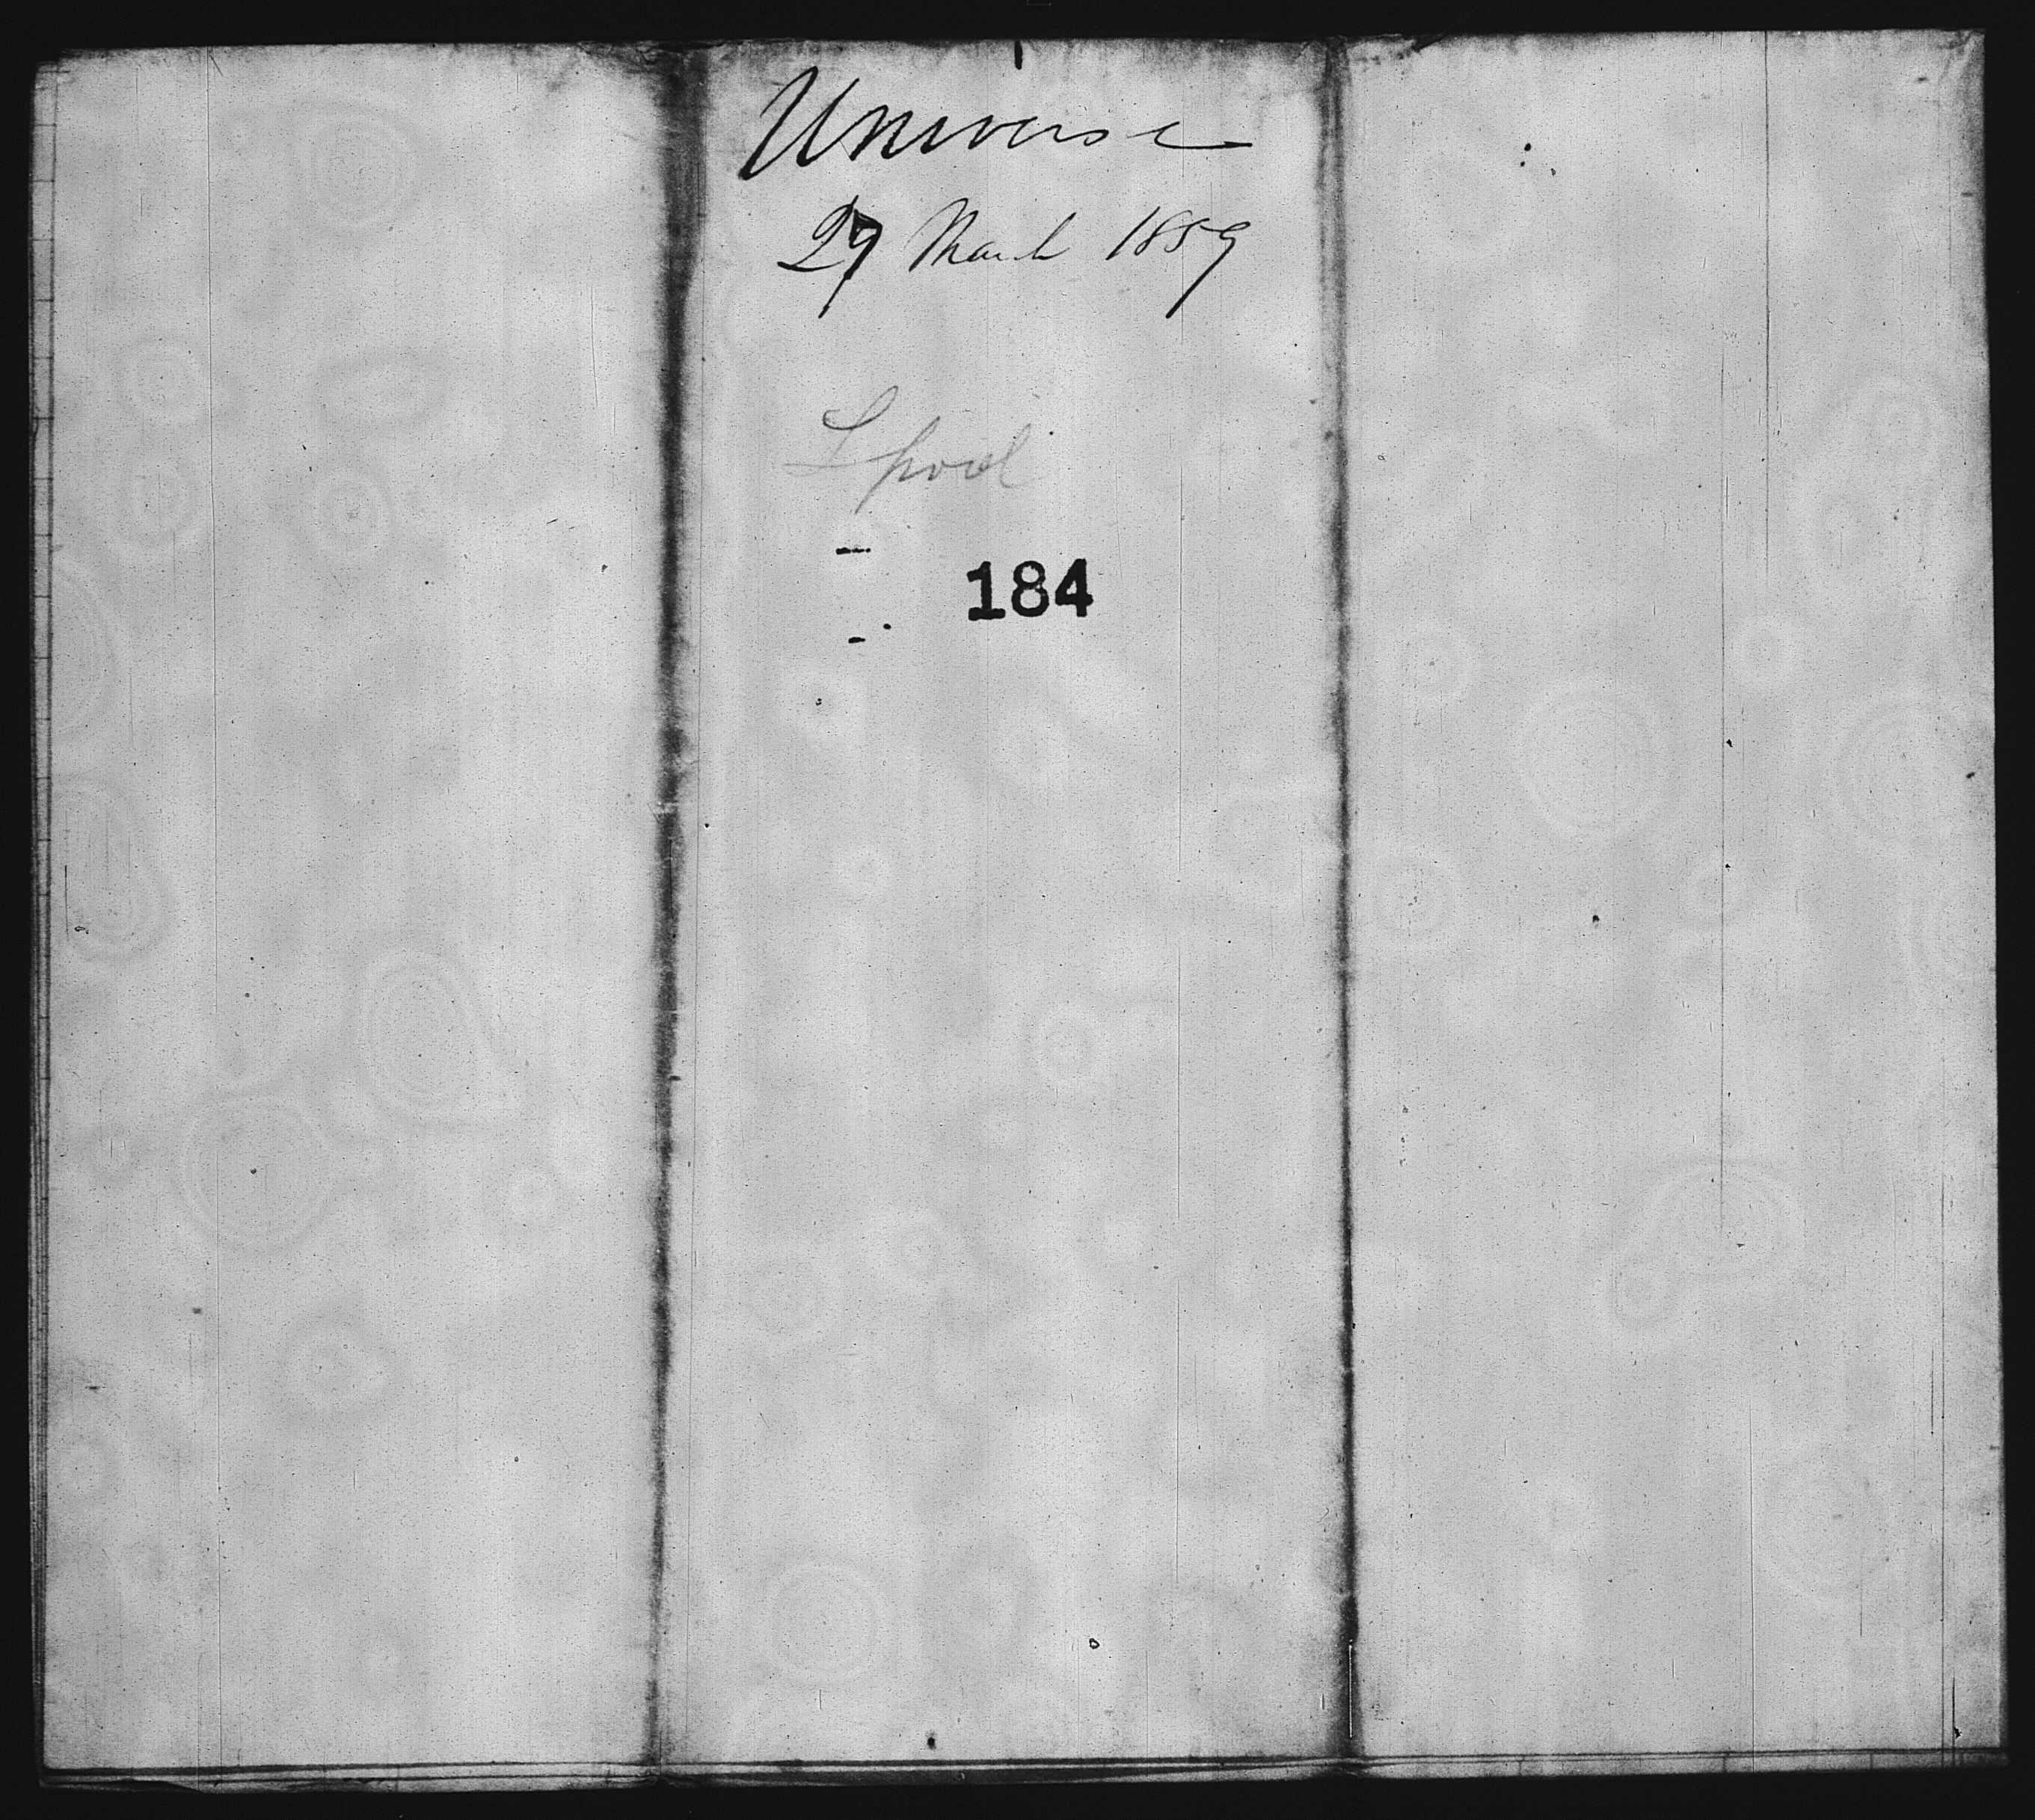 Universe
29 March 1859
Lpool
184